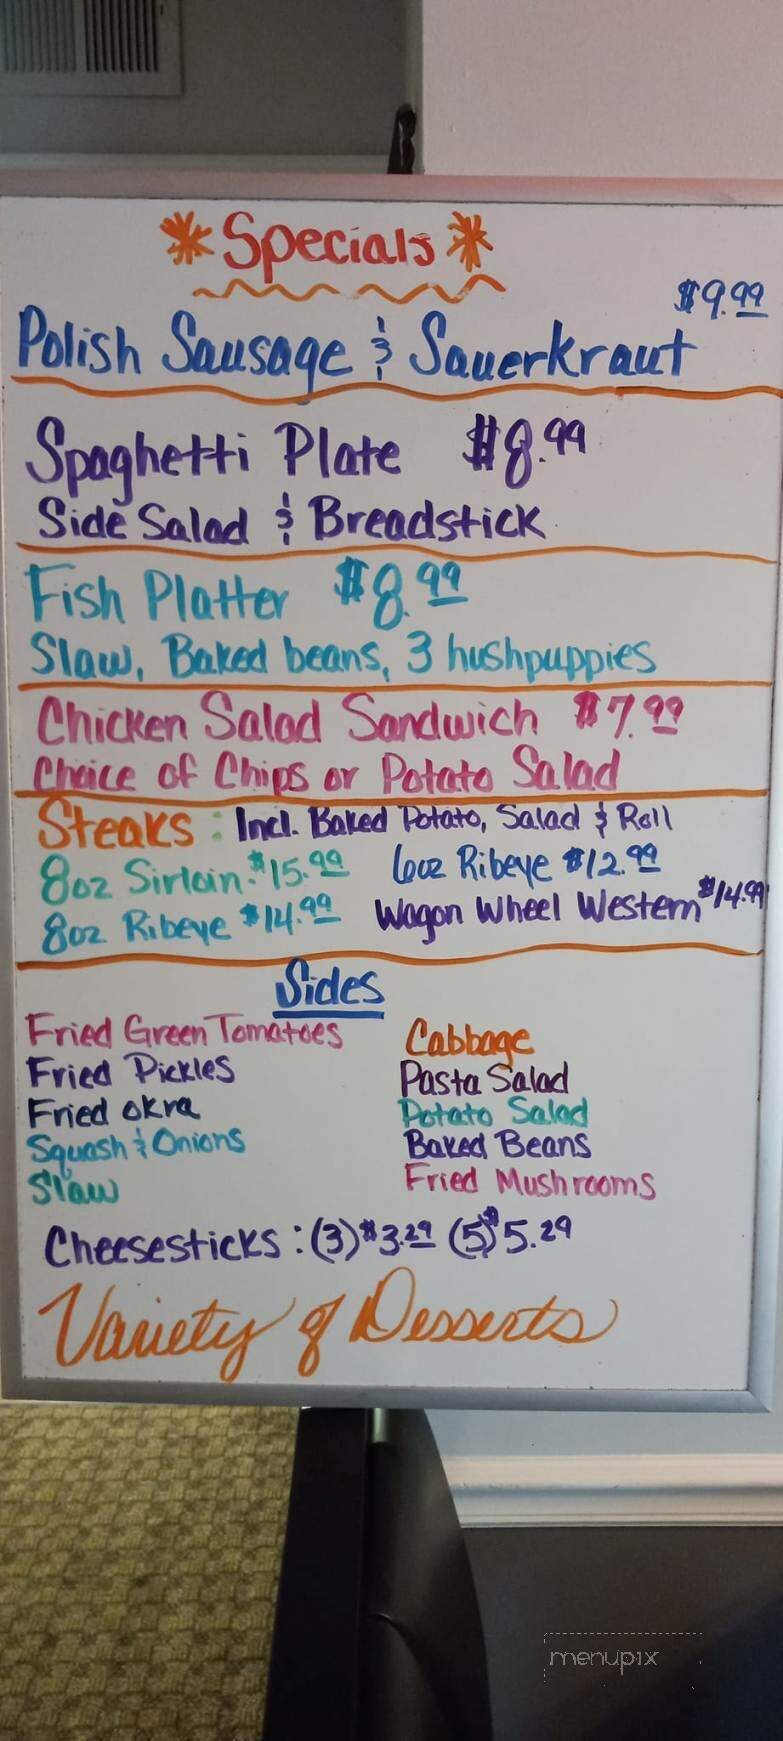 *Specials*
$9.99
Polish Sausage & Sauerkraut
Spaghetti Plate $8.99
Side Salad & Breadstick
Fish Platter $8.99
Slaw, Baked beans, 3 hushpuppies
Chicken Salad Sandwich $7.99
Choice of Chips or Potato Salad
Steaks: Incl. Baked Potato, Salad & Roll
8oz Sirloin: $15.99 6oz Ribeye $12.99
8oz Ribeye $14.99 Wagon Wheel Western $14.99
Sides
Fried Green Tomatoes Cabbage
Fried Pickles Pasta Salad
Fried okra Potato Salad
Squash & Onions Baked Beans
Slaw Fried Mushrooms
Cheesesticks: (3) $3.29 (5) $5.29
Variety of Desserts
menupix